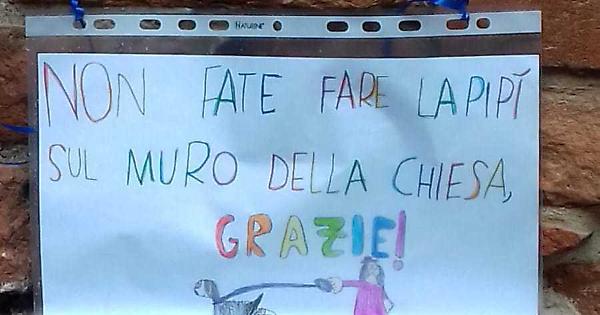 NATURENE
NON FATE FARE LA PIPÍ
SUL MURO DELLA CHIESA,
GRAZIE!